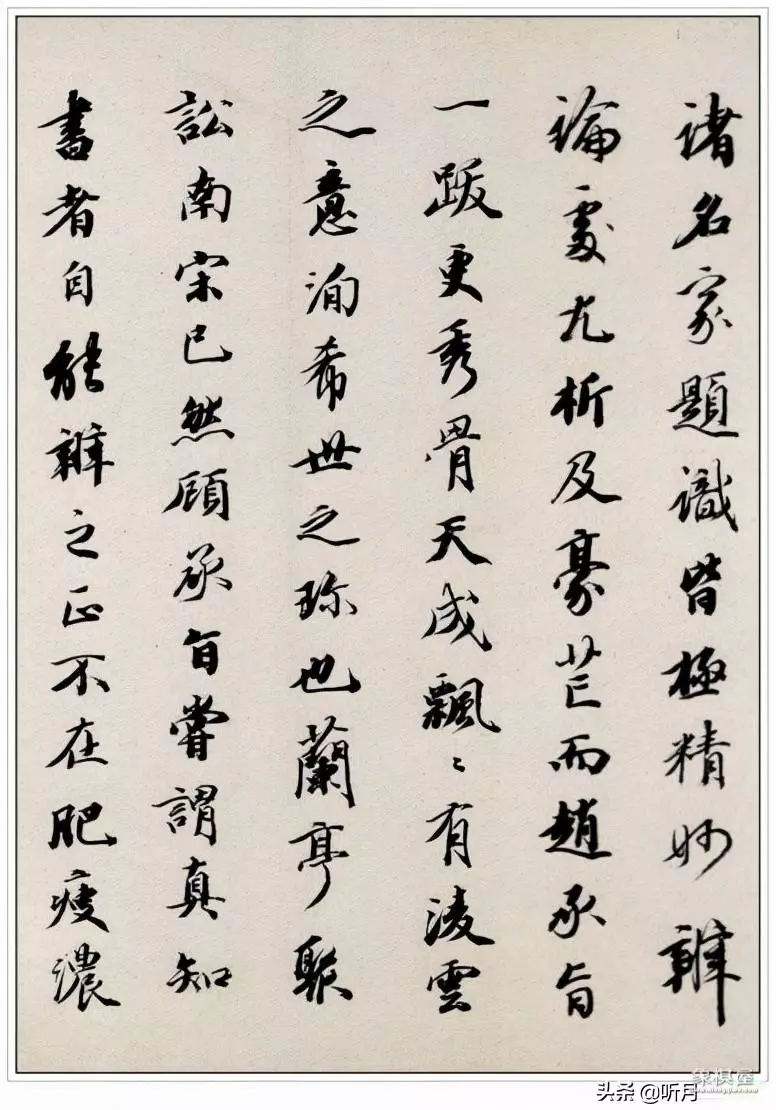 諸名家題識皆極精妙辨
論處尤析及豪芒而趙承旨
一跋更秀骨天成飄〻有凌雲
之意洵希世之珎也蘭亭聚
訟南宋已然顧承旨嘗謂真知
書者自能辨之正不在肥瘦濃
象棋屋
头条@听月